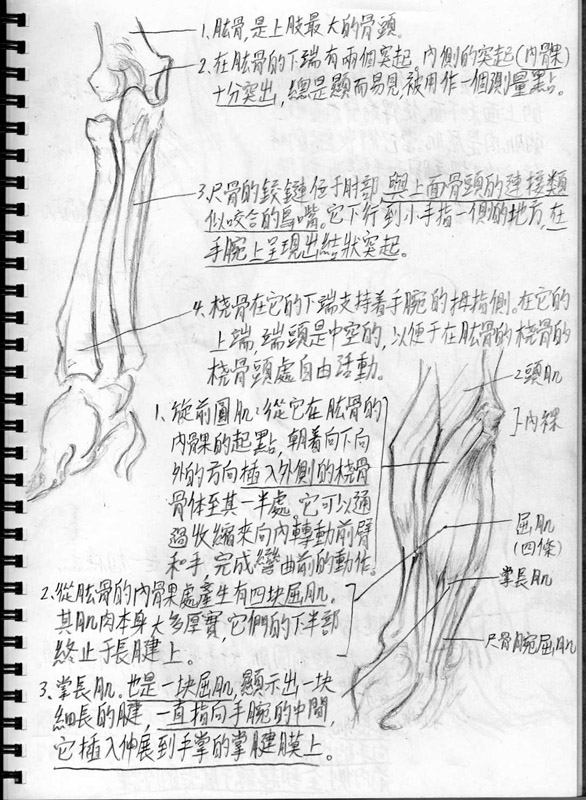 1.肱骨,是上肢最大的骨頭。
2.在肱骨的下端有兩個突起。內側的突起(內骨果)
十分突出,總是顯而易見被用作一個測量點。
3.尺骨的鉸鏈位于肘部 與上面骨頭的連接類
似咬合的鳥嘴。它下行到小手指一側的地方,在
手腕上呈現出結狀突起。
4.桡骨在它的下端支持着手腕的拇指側。在它的
上端,端頭是中空的,以便于在肱骨的桡骨的
桡骨頭處自由活動。
2頭肌
內裸
1、從前圓肌:從它在肱骨的
內骨果的起點,朝着向下向
外的方向插入外側的桡骨
骨体至其一半處。它可以通
過收縮來向內轉動前臂
和手,完成彎曲前的動作。
屈肌
(四條)
掌長肌
尺骨腕屈肌
2.從肱骨的內骨果處產生有四块屈肌。
其肌肉本身大多厚實,它們的下半部
終止于長腱上。
3.掌長肌。也是一块屈肌,顯示出一块
細長的腱,一直指向手腕的中間,
它插入伸展到手掌的掌腱膜上。